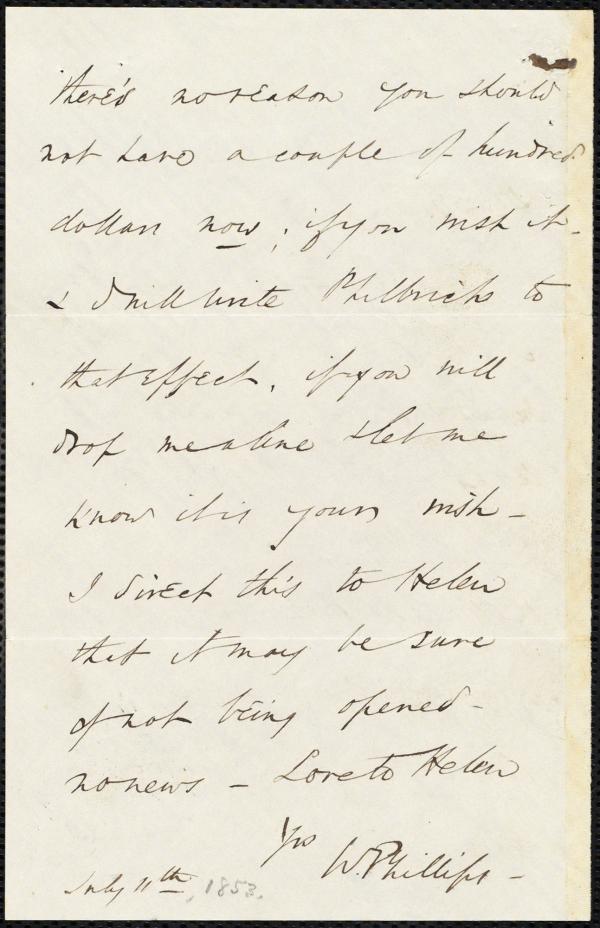 there's no reason you should
not have a couple of hundred
dollars now; if you wish it -
& I will write Philbrick to
that effect, if you will
drop me a line & let me
know it is your wish -
I direct this to Helen
that it may be sure
of not being opened -
no news - Love to Helen
Yrs
W. Phillips -
July 11th, 1853.